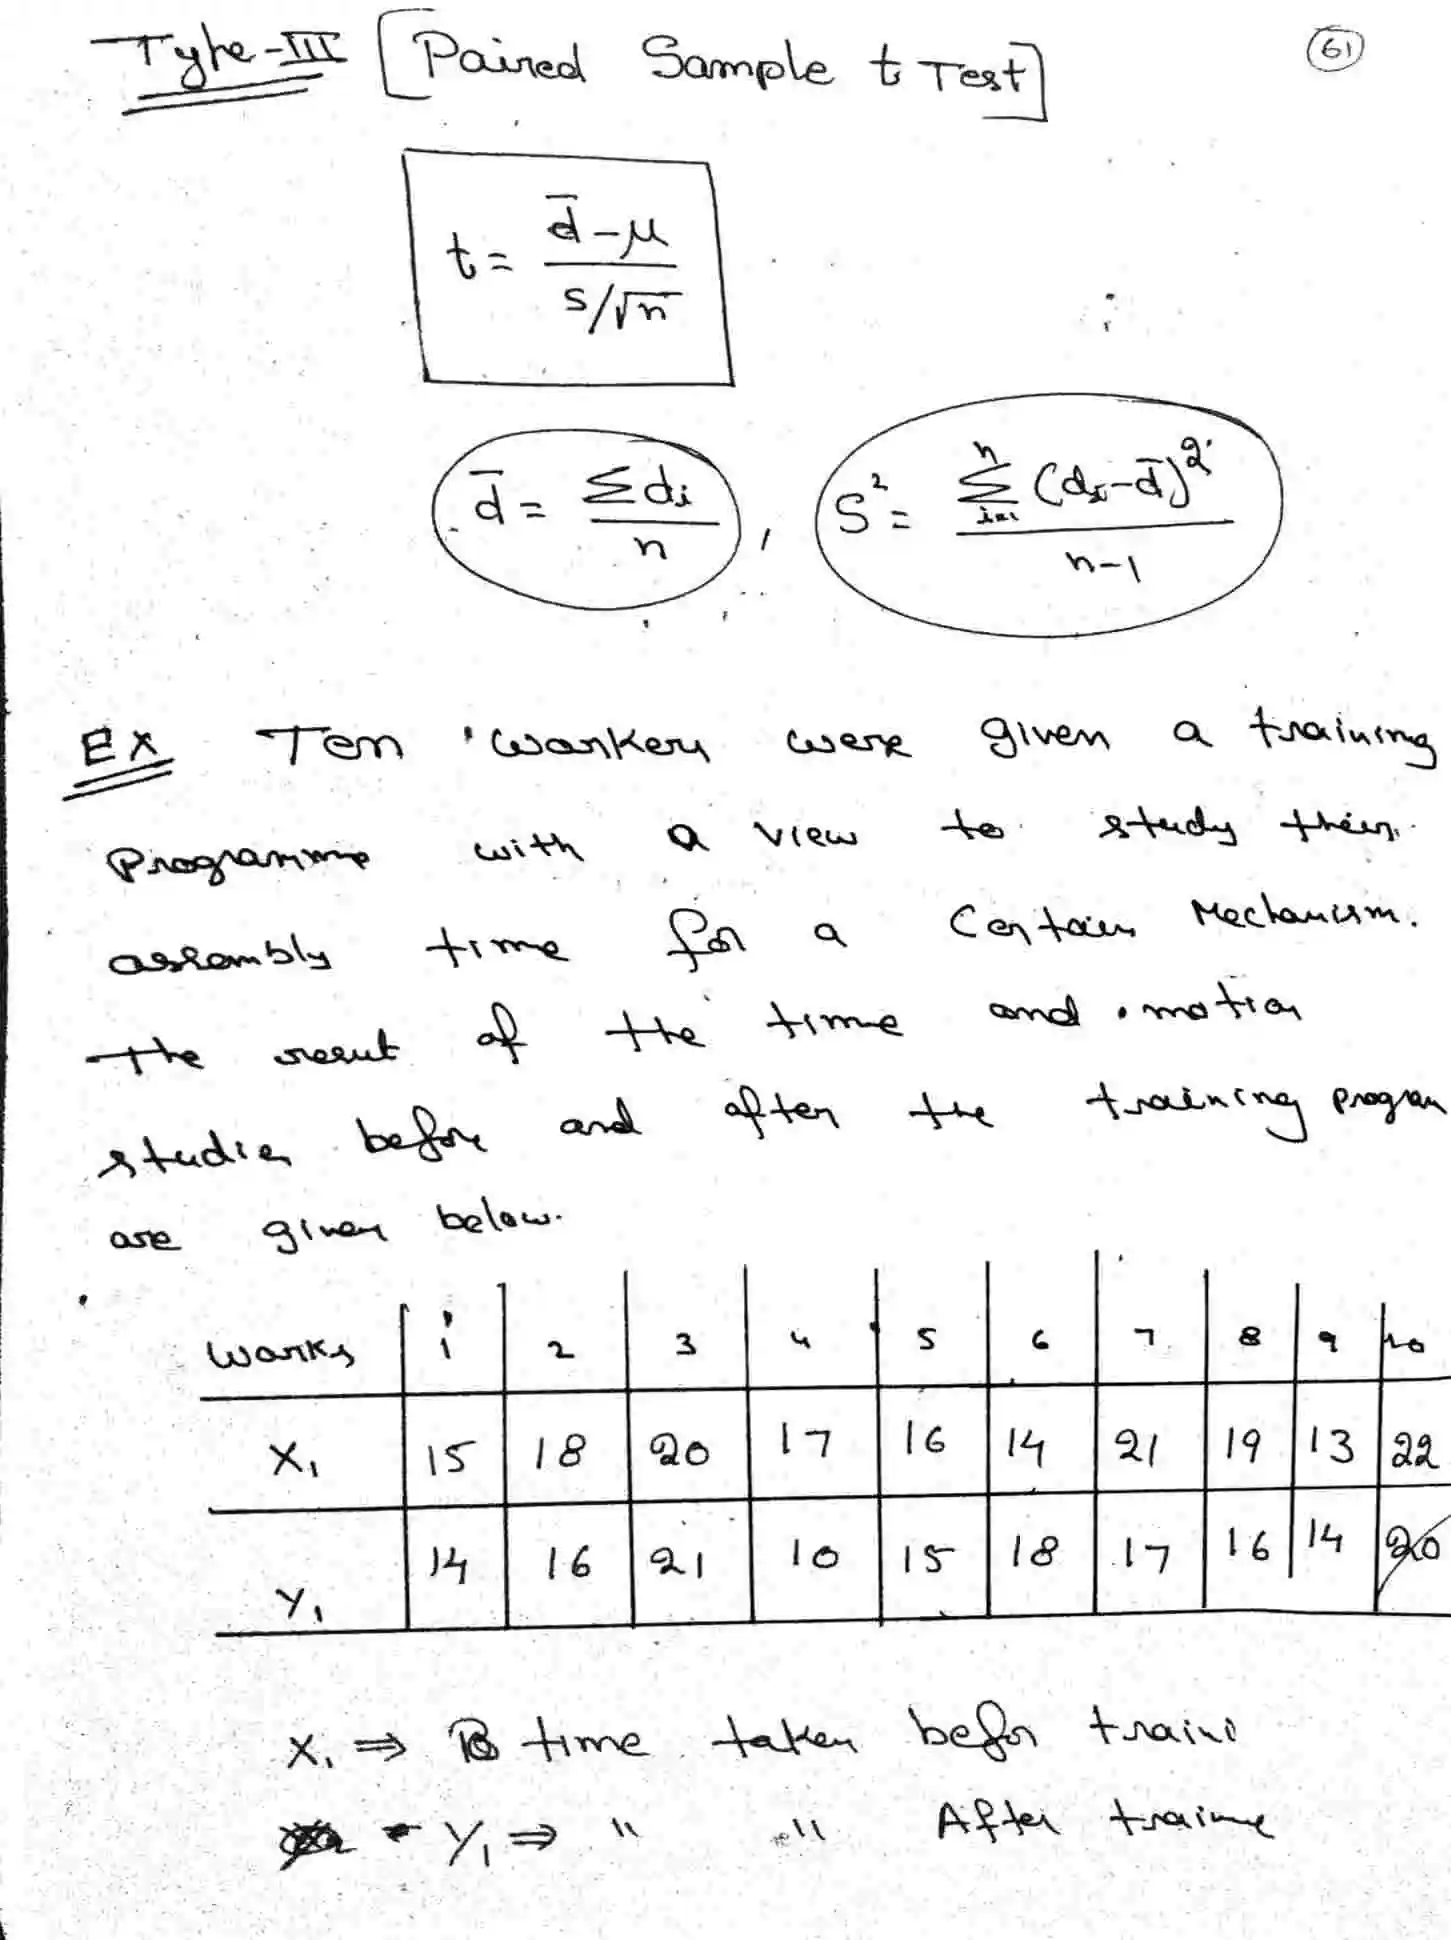 Type-III [Paired Sample t Test]
61
t = (d̄ - μ) / (s/√n)
d̄ = Σdi / n , S² = Σ(i=1 to n) (di - d̄)² / (n-1)
Ex Ten workers were given a training
Programme with a view to study their
assembly time for a Certain Mechanism.
The result of the time and motion
studies before and after the training program
are given below.
Works 1 2 3 4 5 6 7 8 9 10
X₁ 15 18 20 17 16 14 21 19 13 22
Y₁ 14 16 21 10 15 18 17 16 14 20
X₁ ⇒ time taken befor traini
Y₁ ⇒ " " After traine